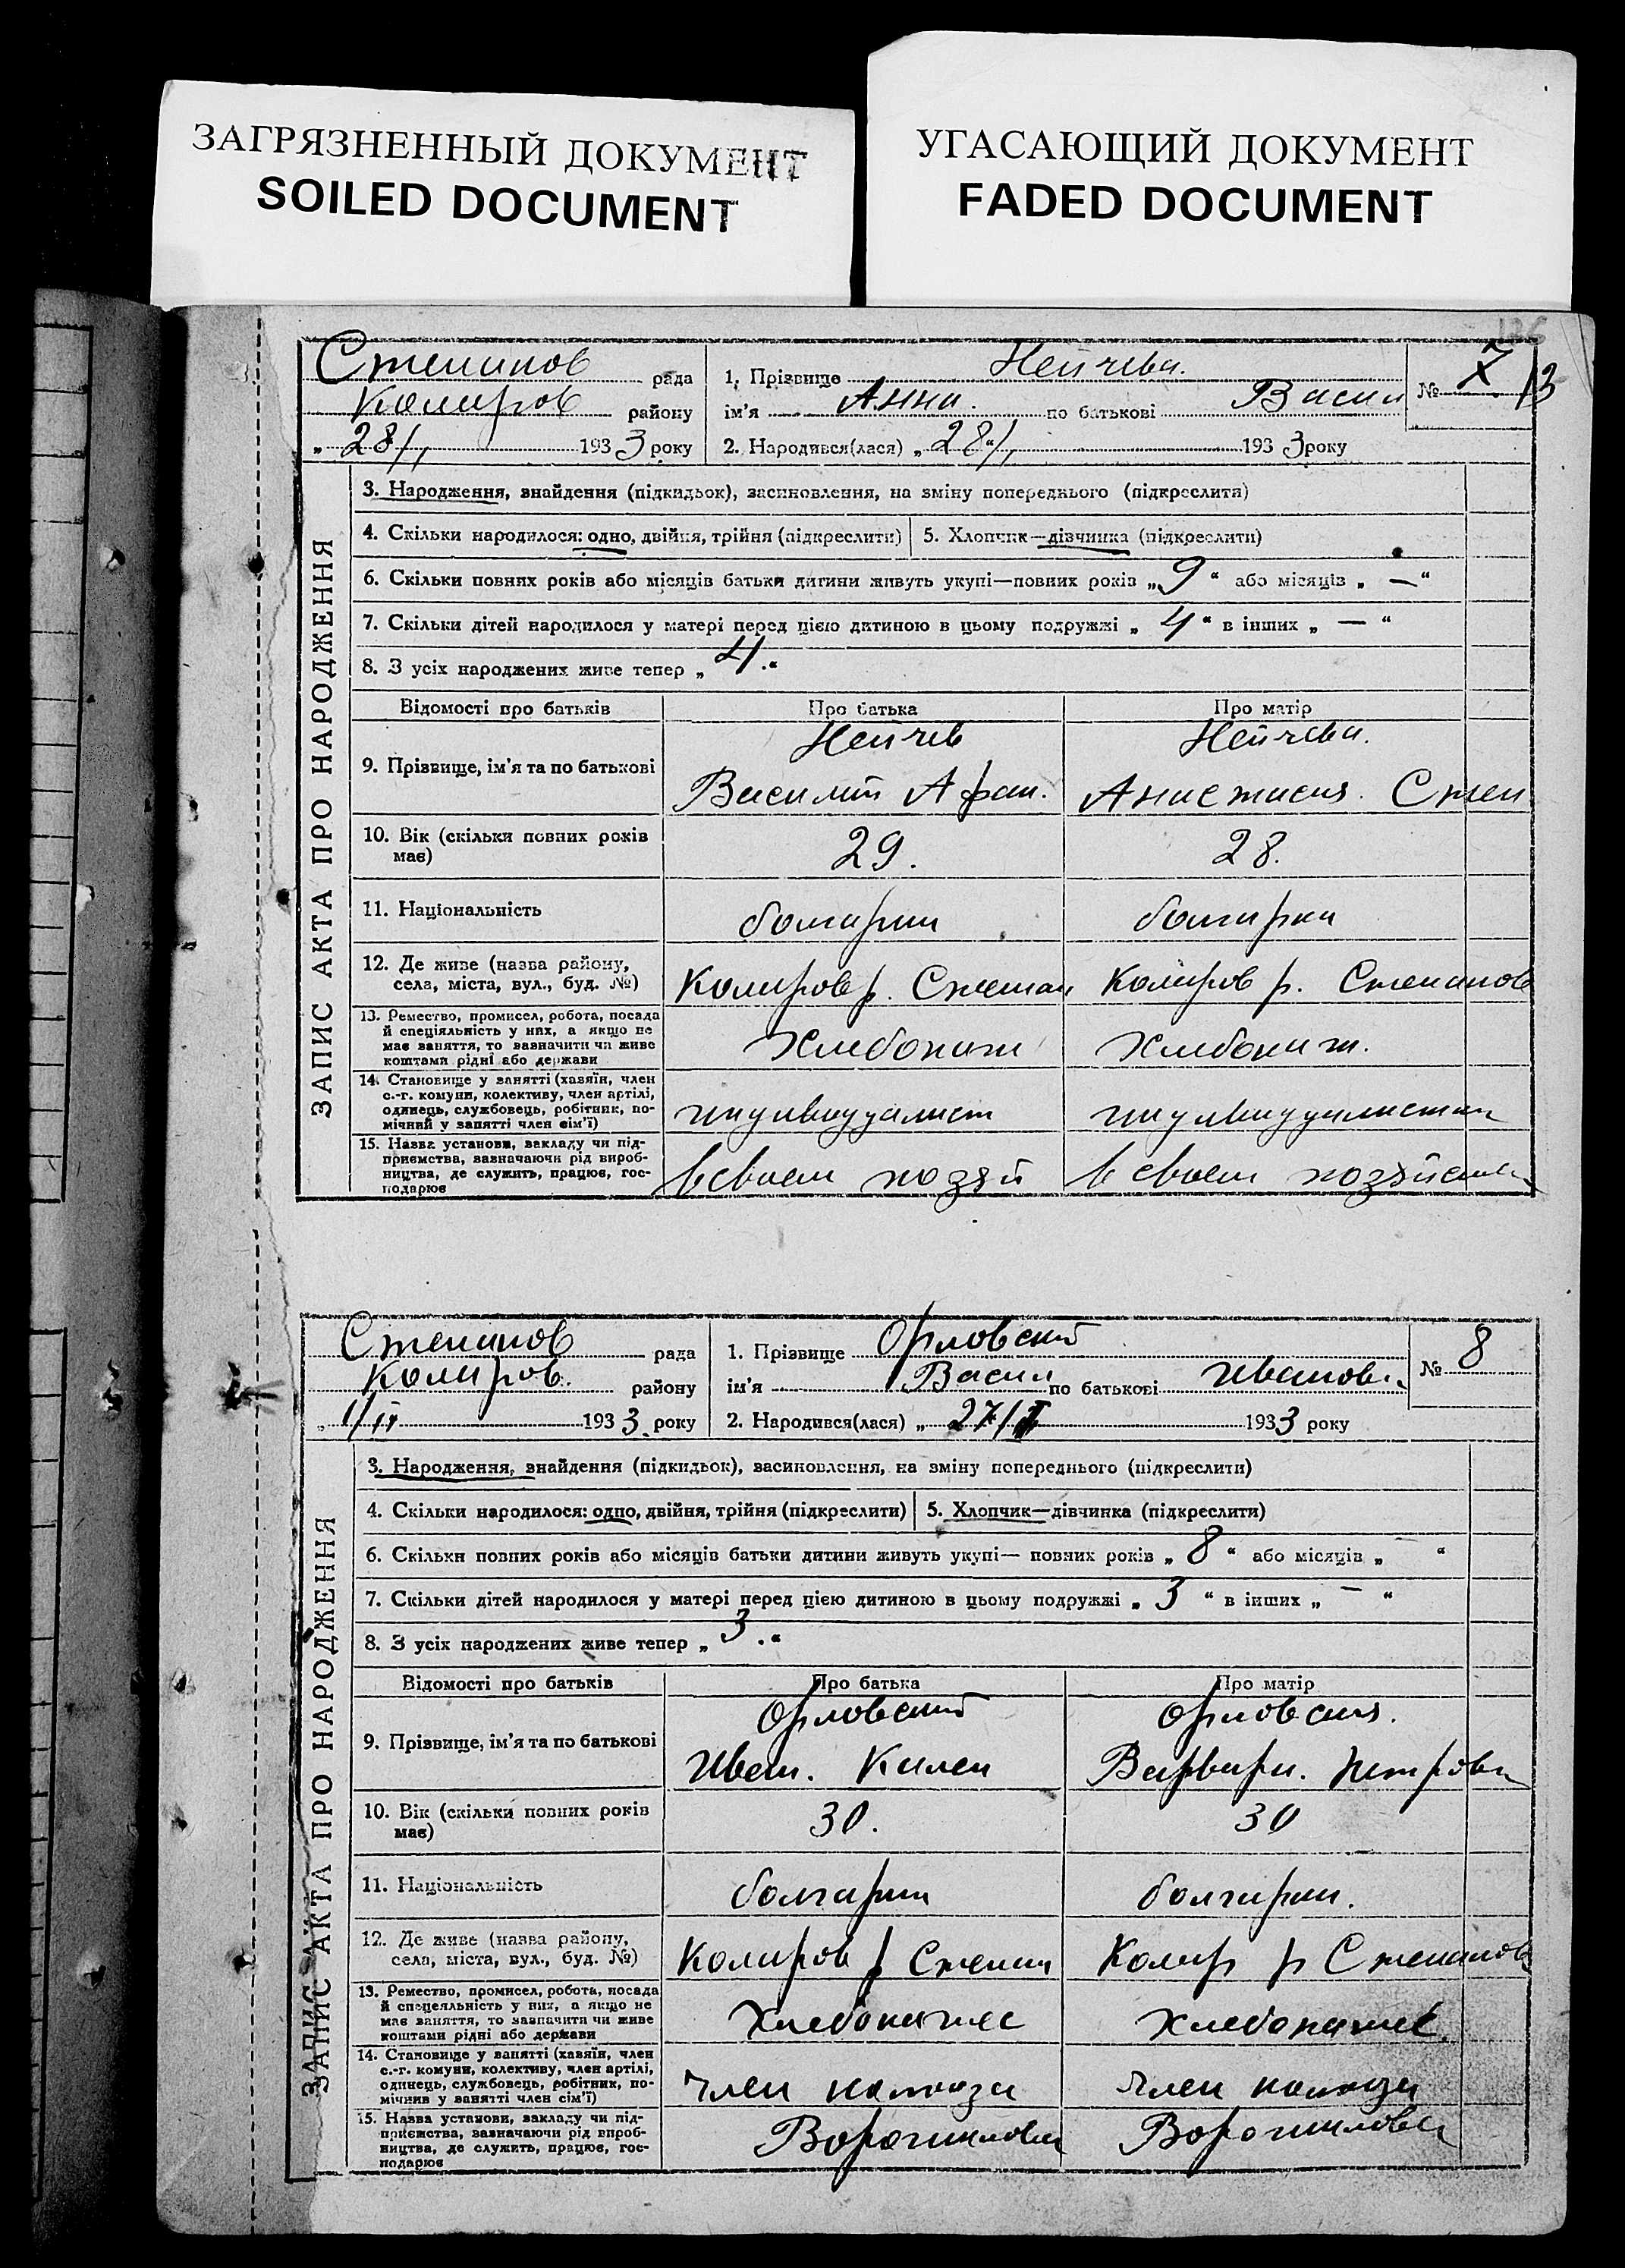 ЗАГРЯЗНЕННЫЙ ДОКУМЕНТ
SOILED DOCUMENT
УГАСАЮЩИЙ ДОКУМЕНТ
FADED DOCUMENT
136
Степанов рада
Коларов району
„ 28/1 1933 року
1. Прізвище Нейчева.
ім'я Анна. по батькові Васил
2. Народився(лася) „ 28/1 1933 року
№ 7 13
ЗАПИС АКТА ПРО НАРОДЖЕННЯ
3. Народження, знайдення (підкидьок), засиновлення, на зміну попереднього (підкреслити)
4. Скільки народилося: одно, двійня, трійня (підкреслити) 5. Хлопчик—дівчинка (підкреслити)
6. Скільки повних років або місяців батьки дитини живуть укупі—повних років „ 9 “ або місяців „ — “
7. Скільки дітей народилося у матері перед цією дитиною в цьому подружжі „ 4 “ в інших „ — “
8. З усіх народжених живе тепер „ 4. “
Відомості про батьків Про батька Про матір
9. Прізвище, ім'я та по батькові
Нейчев
Василий Афан.
Нейчева.
Анастасия. Степ
10. Вік (скільки повних років має) 29. 28.
11. Національність болгарин болгарка
12. Де живе (назва району, села, міста, вул., буд. №) Коларов р. Степан Коларов р. Степанов
13. Ремество, промисел, робота, посада
й спеціяльність у них, а якщо не
має заняття, то зазначити чи живе
коштами рідні або держави
Хлебопаш Хлебопаш.
14. Становище у занятті (хазяїн, член
с.-г. комуни, колективу, член артілі,
одинець, службовець, робітник, по-
мічний у занятті член сім'ї)
индивидуалист индивидуалистка
15. Назва установи, закладу чи під-
приємства, зазначаючи рід вироб-
ництва, де служить, працює, гос-
подарює
в своем хозяй в своем хозяйстве
Степанов рада
Коларов. району
„ 1/II 1933 року
1. Прізвище Орловский
ім'я Васил по батькові Иванов
2. Народився(лася) „ 27/I 1933 року
№ 8
ЗАПИС АКТА ПРО НАРОДЖЕННЯ
3. Народження, знайдення (підкидьок), засиновлення, на зміну попереднього (підкреслити)
4. Скільки народилося: одно, двійня, трійня (підкреслити) 5. Хлопчик—дівчинка (підкреслити)
6. Скільки повних років або місяців батьки дитини живуть укупі— повних років „ 8 “ або місяців „ — “
7. Скільки дітей народилося у матері перед цією дитиною в цьому подружжі „ 3 “ в інших „ — “
8. З усіх народжених живе тепер „ 3. “
Відомості про батьків Про батька Про матір
9. Прізвище, ім'я та по батькові
Орловский
Иван.
Орловская.
Варвара. Петровн
10. Вік (скільки повних років має) 30. 30
11. Національність болгарин болгарка.
12. Де живе (назва району, села, міста, вул., буд. №) Коларов р Степан Колар р Степанов
13. Ремество, промисел, робота, посада
й спецеяльність у них, а якщо не
має заняття, то зазначити чи живе
коштами рідні або держави
Хлебопашес Хлебопашес
14. Становище у занятті (хазяїн, член
с.-г. комуни, колективу, член артілі,
одинець, службовець, робітник, по-
мічнив у занятті член сім'ї)
член колхоза член колхоза
15. Назва установи, закладу чи під-
приємства, зазначаючи рід вироб-
ництва, де служить, працює, гос-
подарює
Ворошилова Ворошилова